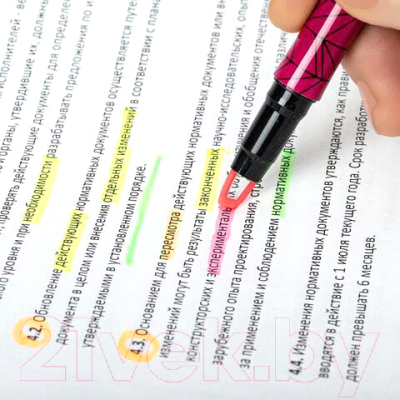 исполнителей - в
и органы, утвердившие их, должны
, проверять действующие документы для определе
ного уровня и при необходимости разрабатывать предложения по
4.2. Обновление действующих нормативных документов осуществляется путем
документа в целом или внесения отдельных изменений в соответствии с плана
утверждаемыми в установленном порядке.
4.3. Основанием для пересмотра действующих нормативных документов или вн
изменений могут быть результаты законченных научно-исследовательских, опыт
конструкторских и эксперименталь
зарубежного опыта проектирования, стр и обобщения отечестве
за применением и соблюдением нормативных доку
4.4. Изменения нормативных документов утверждаются, как прав
вводятся в действие с 1 июля текущего года. Срок разработ
должен превышать 6 месяцев.
21vek.by